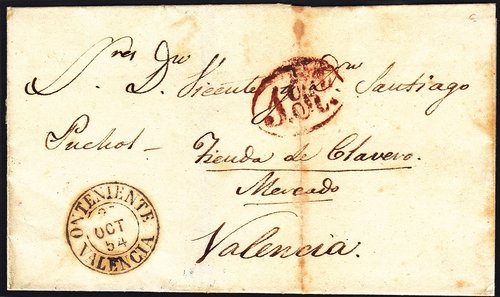 S.res D.n Vicente y D.n Santiago
Puchol - Tienda de Clavero.
Mercado
Valencia.
ONTENIENTE
OCT
54
VALENCIA